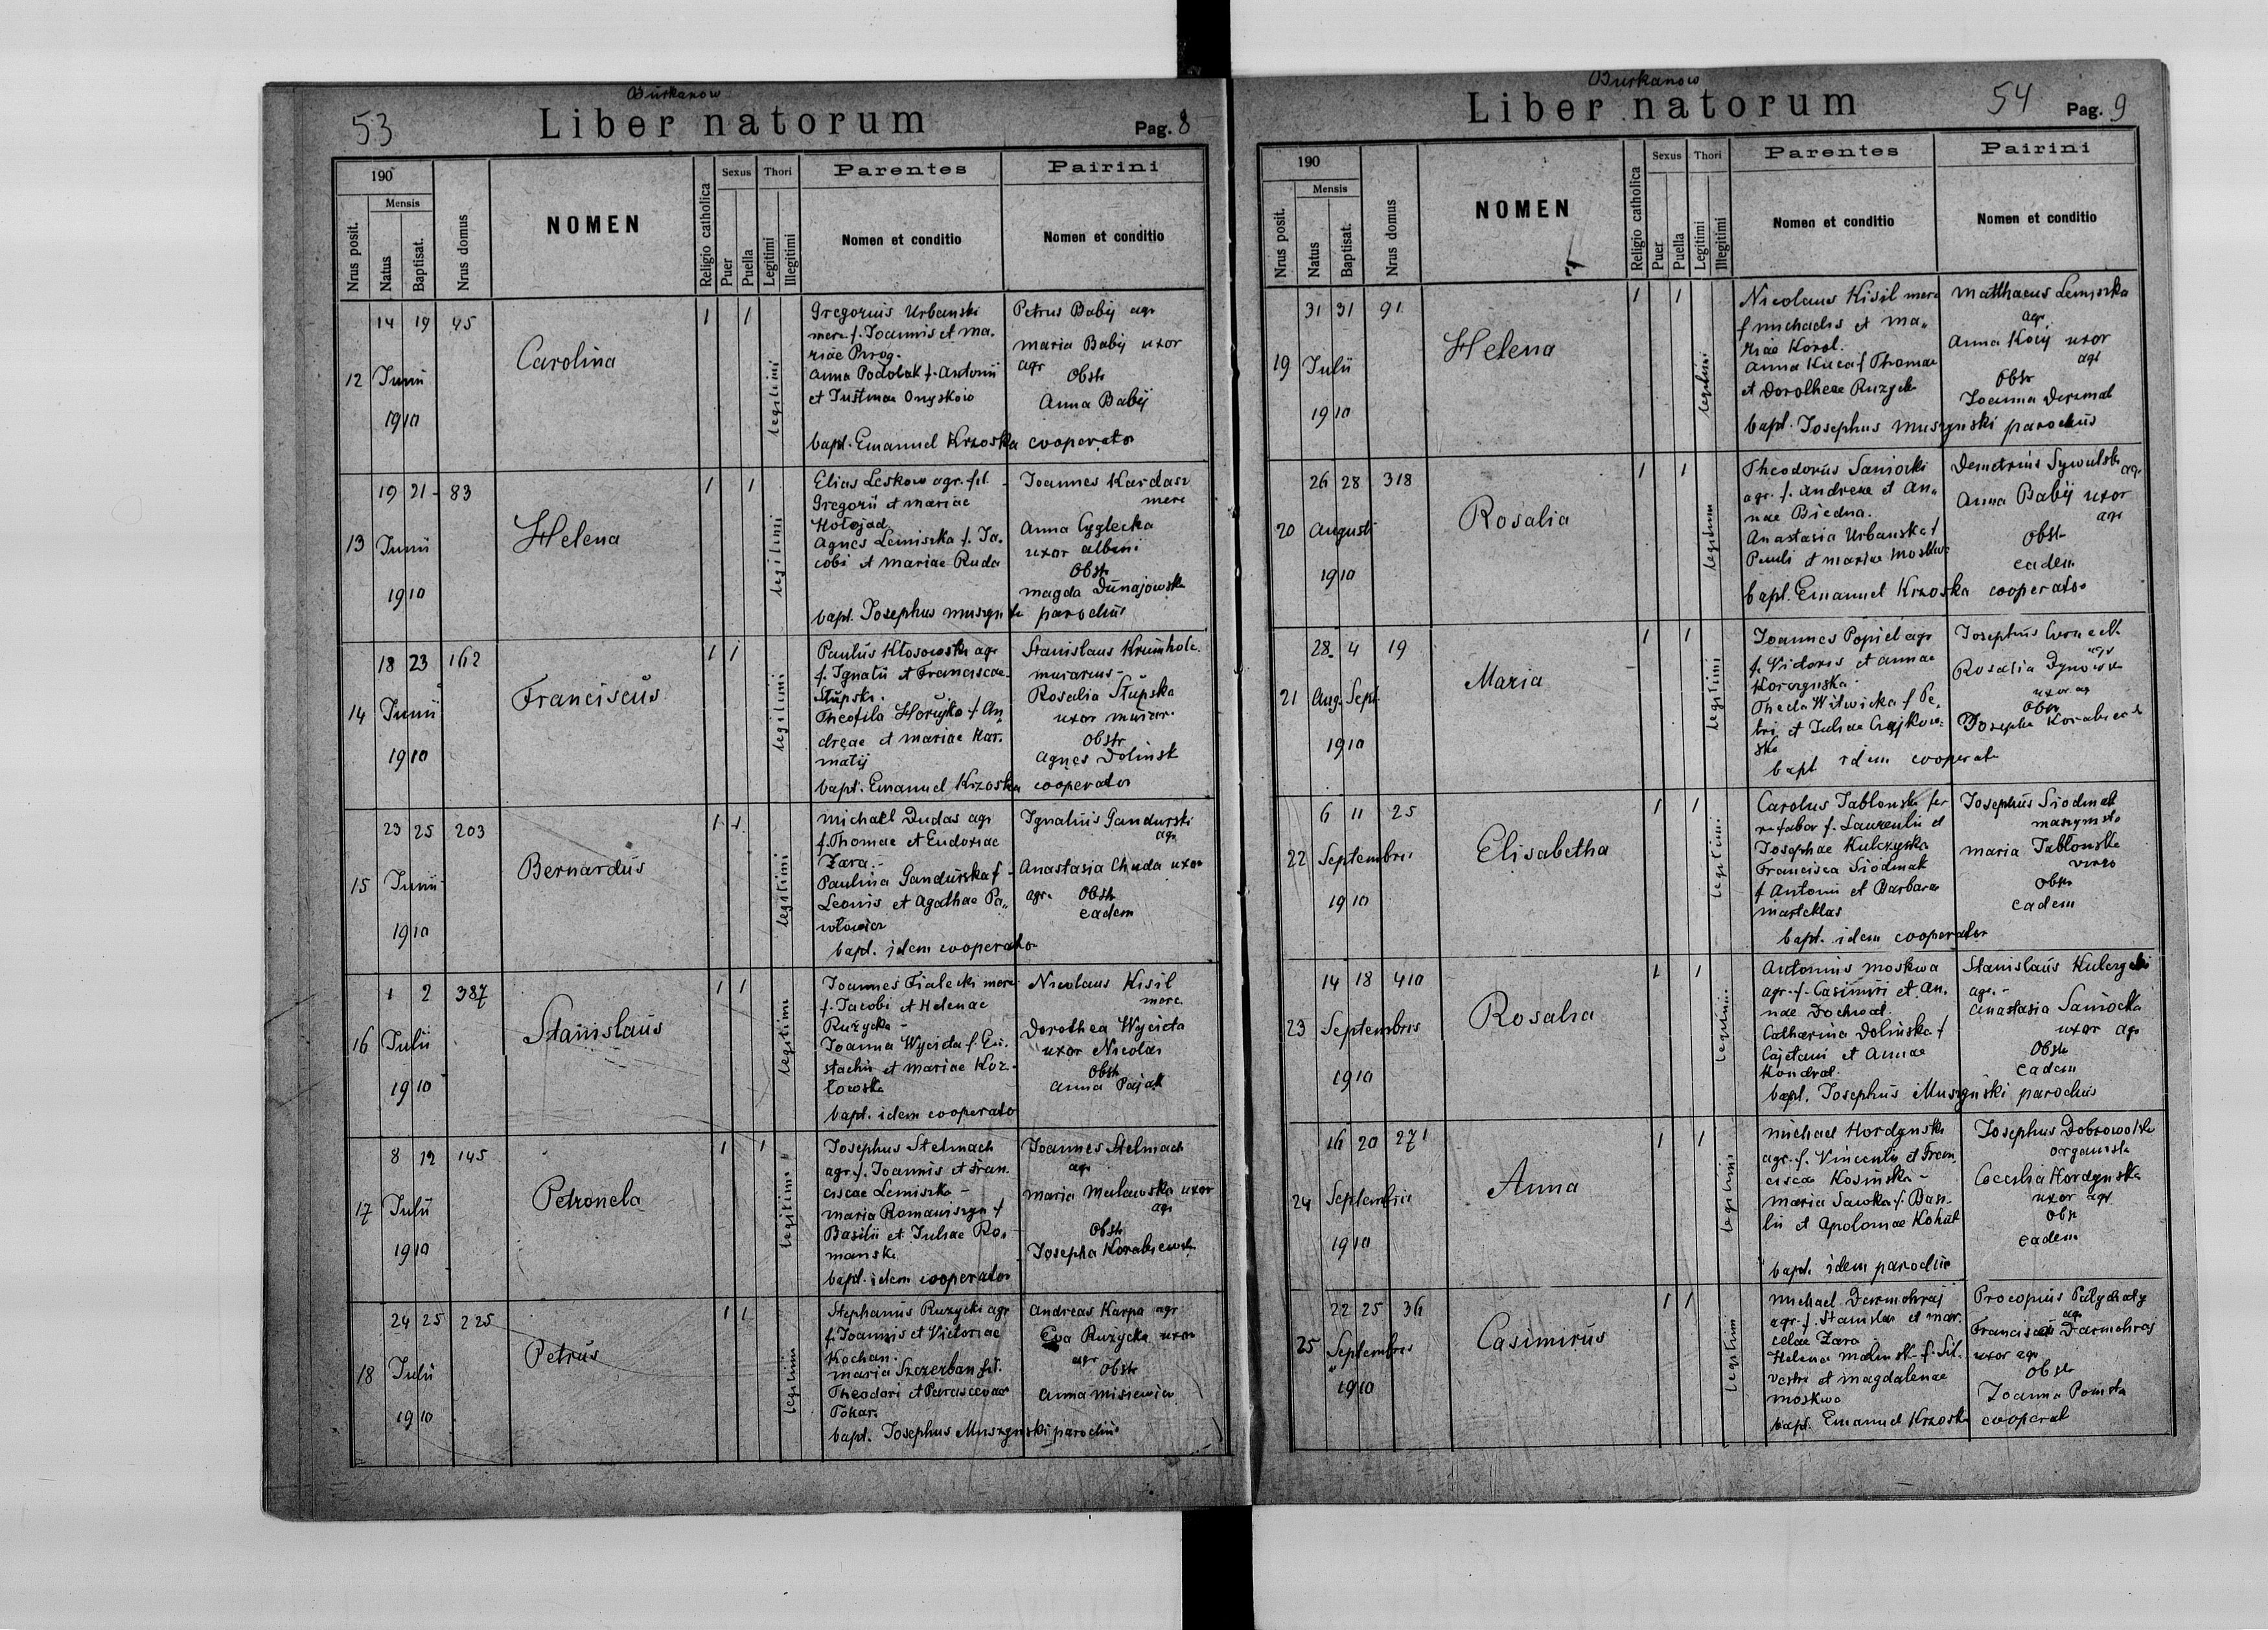 Burkanow
53 Liber natorum Pag. 8
190
Mensis
Nrus posit.
Natus
Baptisat.
Nrus domus
NOMEN
Religio catholica
Sexus
Puer
Puella
Thori
Legitimi
Illegitimi
Parentes
Nomen et conditio
Pairini
Nomen et conditio
12
14 19 45
Junii
1910
Carolina
1 1
legitimi
Gregorius Urbanski
merc. f. Joannis et Ma-
riae Pirog.
Anna Podolak f. Antonii
et Justinae Onyskow
Petrus Babij agr
Maria Babij uxor
agr
Obstr
Anna Babij
bapt. Emanuel Krzoska cooperator
13
19 21 83
Junii
1910
Helena
1 1
legitimi
Elias Leskow agr. fil.
Gregorii et Mariae
Hołojad
Agnes Lemiszka f. Ja-
cobi et Mariae Ruda
Joannes Kardasz
merc
Anna Cyglecka
uxor Albini
Obstr
Magda Dunajowska
bapt. Josephus Muszynski parochus
14
18 23 162
Junii
1910
Franciscus
1 1
legitimi
Paulus Kłosowski agr
f. Ignatii et Franciscae
Słupski.
Theofila Horyjko f. An
dreae et Mariae Har.
matij
Stanislaus Krumholc.
murarius -
Rosalia Słupska
uxor murar.
Obstr
Agnes Dolinsk
bapt. Emanuel Krzoska cooperator
15
23 25 203
Junii
1910
Bernardus
1 1
legitimi
Michael Dudas agr
f. Thomae et Eudoxiae
Zara.-
Paulina Gandurska f
Leonis et Agathae Pa„
włowicz
Ignatius Gandurski
agr
Anastasia Chuda uxor
agr. Obstr
eadem
bapt. idem cooperator
16
1 2 387
Julii
1910
Stanislaus
1 1
legitimi
Joannes Fialecki merc
f. Jacobi et Helenae
Ruzycka -
Joanna Wycista f. Eu-
stachii et Mariae Koz-
łowska
Nicolaus Kisil
merc.
Dorothea Wycista
uxor Nicolai
Obstr
Anna Pajak
bapt. idem cooperator
17
8 12 145
Julii
1910
Petronela
1 1
legitimi
Josephus Stelmach
agr. f. Joannis et Fran.
ciscae Lemiszka -
Maria Romaniszyn f
Basilii et Juliae Ro„
manski
Joannes Stelmach
agr
Maria Mulawska uxor
agr
Obstr
Josepha Korabiewska
bapt. idem cooperator
18
24 25 225
Julii
1910
Petrus
1 1
legitimi
Stephanus Ruzycki agr
f. Joannis et Victoriae
Kochan.
Maria Szczerban fil.
Theodori et Parascevae
Tokar.
Andreas Karpa agr
Eva Ruzycka uxor
agr
Obstr
Anna Misiewicz
bapt. Josephus Muszynski parochus
Burkanow
Liber natorum 54 Pag. 9
190
Mensis
Nrus posit.
Natus
Baptisat.
Nrus domus
NOMEN
Religio catholica
Sexus
Puer
Puella
Thori
Legitimi
Illegitimi
Parentes
Nomen et conditio
Pairini
Nomen et conditio
19
31 31 91
Julii
1910
Helena
1 1
legitimi
Nicolaus Kisil merc
f Michaelis et Ma„
riae Korol.
Anna Kuca f Thomae
et Dorotheae Ruzycka
Matthaeus Lemiszka
agr.
Anna Kocij uxor
agr
Obstr
Joanna Dermal
bapt. Josephus Muszynski parochus
20
26 28 318
Augusti
1910
Rosalia
1 1
legitimi
Theodorus Saniocki
agr. f. Andreae et An„
nae Biedna.
Anastasia Urbanska f
Pauli et Mariae Moskwa
Demetrius Sywulski
agr
Anna Babij uxor
agr
Obstr
eadem
bapt. Emanuel Krzoska cooperator
21
28 4 19
Aug. Sept
1910
Maria
1 1
legitimi
Joannes Popiel agr
f. Victoris et Annae
Korczynska
Thecla Witwicka f Pe.
tri et Juliae Czajkow-
ska
Josephus
agr
Rosalia Dynowska
uxor ag
Obstr
Josepha Korabiewsk
bapt idem cooperat
22
6 11 25
Septembris
1910
Elisabetha
1 1
legitimi
Carolus Jablonski fer
r. fabor f. Laurentii et
Josephae Kulczyska
Francisca Siodmak
f Antonii et Barbarae
Josephus Siodmak
Maria Jablonska
virgo
Obstr
eadem
bapt. idem cooperator
23
14 18 410
Septembris
1910
Rosalia
1 1
legitimi
Antonius Moskwa
agr. f. Casimiri et An.
nae Dochwat.
Catharina Dolinska f
Cajetani et Annae
Kondrat.
Stanislaus Kulczycki
agr. -
Anastasia Saniocka
uxor agr
Obstr
eadem
bapt. Josephus Muszynski parochus
24
16 20 271
Septembris
1910
Anna
1 1
legitimi
Michael Hordynski
agr. f. Vincentii et Fran.
ciscae Kosinska -
Maria Sawka f. Basi-
lii et Apoloniae Kohut
Josephus Dobrowolski
organista
Coecilia Hordynska
uxor agr
Obstr
eadem
bapt. idem parochus
25
22 25 36
Septembris
1910
Casimirus
1 1
legitimi
Michael Darmohraj
agr. f. Stanislai et Mar.
celae Zara
Helena Malinsk f. Sil-
vestri et Magdalenae
Moskwa
Procopius Patychaty
agr
Francisca Darmohraj
uxor agr
Obstr
Joanna
bapt. Emanuel Krzoska cooperat